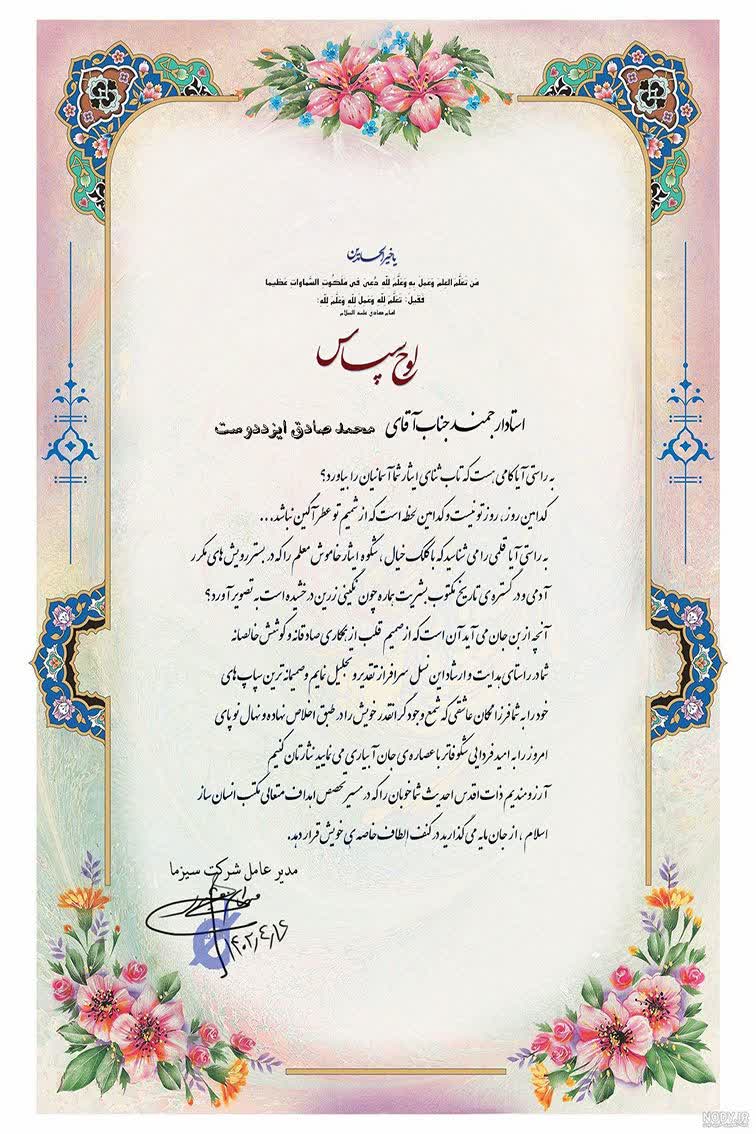 یا خیر الحامدین
مَن تَعَلَّمَ العِلمَ وَعَمِلَ بِهِ وَعَلَّمَ لِلّهِ دُعیَ فی مَلَکُوتِ السَّماواتِ عَظیما
فَقیلَ: تَعَلَّمَ لِلّهِ وَعَمِلَ لِلّهِ وَعَلَّمَ لِلّهِ؛
امام صادق علیه السلام
لوح سپاس
استاد ارجمند جناب آقای محمد صادق ایزددوست
به راستی آیا کامی هست که تاب ثنای ایثار شما آسمانیان را بیاورد؟
کدامین روز، روز تو نیست و کدامین لحظه است که از شمیم تو عطرآگین نباشد...
به راستی آیا قلمی را می شناسید که با کلک خیال، شکوه ایثار خاموش معلم را که در بستر رویش های مکرر
آدمی و در گستره ی تاریخ مکتوب بشریت هماره چون نگینی زرین درخشیده است به تصویر آورد؟
آنچه از بن جان می آید آن است که از صمیم قلب از همکاری صادقانه و کوشش خالصانه
شما در راستای هدایت و ارشاد این نسل سرافراز تقدیر و تجلیل نمایم و صمیمانه ترین سپاس های
خود را به شما فرزانگان عاشقی که شمع وجود گرانقدر خویش را در طبق اخلاص نهاده و نهال نوپای
امروز را به امید فردایی شکوفاتر با عصاره ی جان آبیاری می نمایید نثارتان کنیم
آرزومندیم ذات اقدس احدیث شما خوبان را که در مسیر تحصص اهداف متعالی مکتب انسان ساز
اسلام، از جان مایه می گذارید در کنف الطاف خاصه ی خویش قرار دهد.
مدیر عامل شرکت سیزما
۱۴۰۲,۴,۱۶
NODY.IR